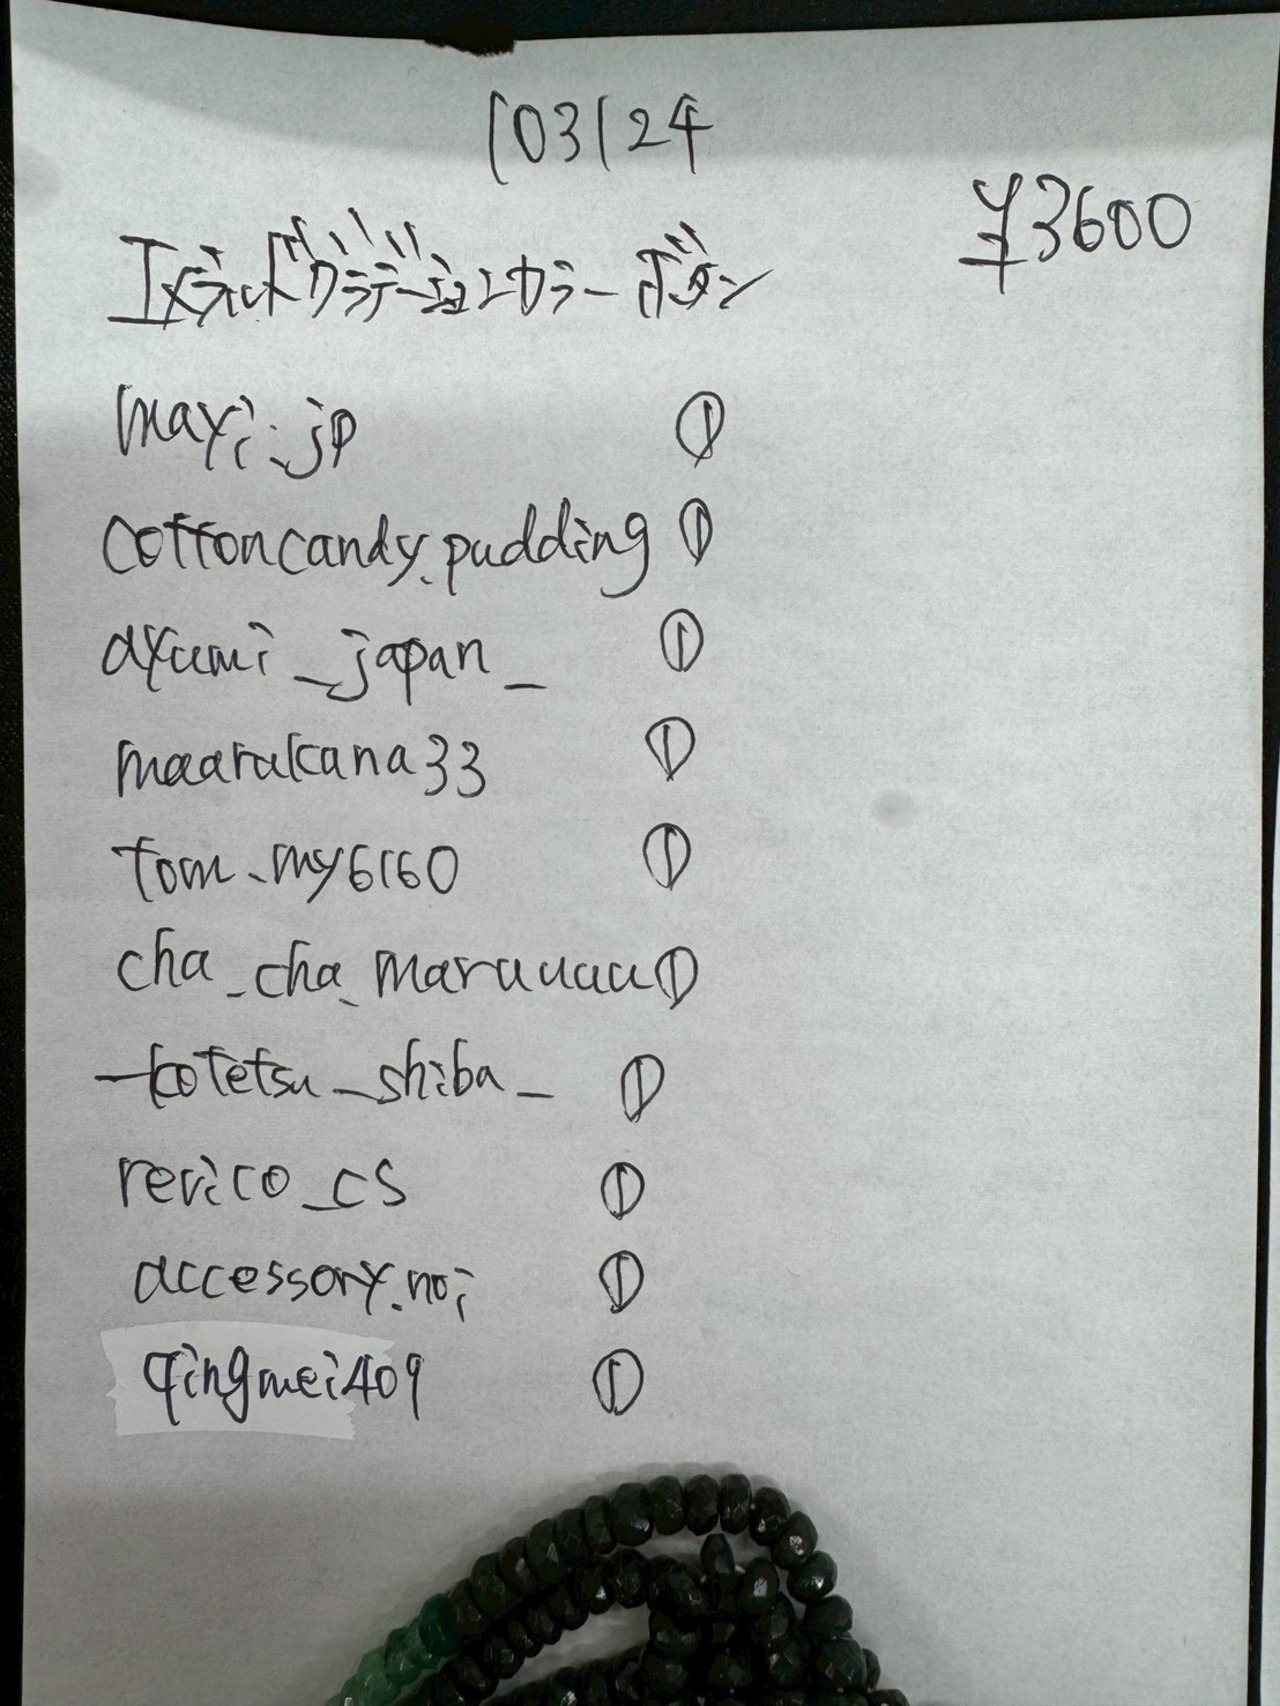 103124
¥3600
エメラルドグラデーションカラーボタン
mayi_.jp ①
cottoncandy.pudding ①
ayumi_japan_ ①
maarukana33 ①
tom.my6160 ①
cha_cha_maruuuu ①
_kotetsu_shiba_ ①
rerico_cs ①
accessory.noi ①
qingmei409 ①